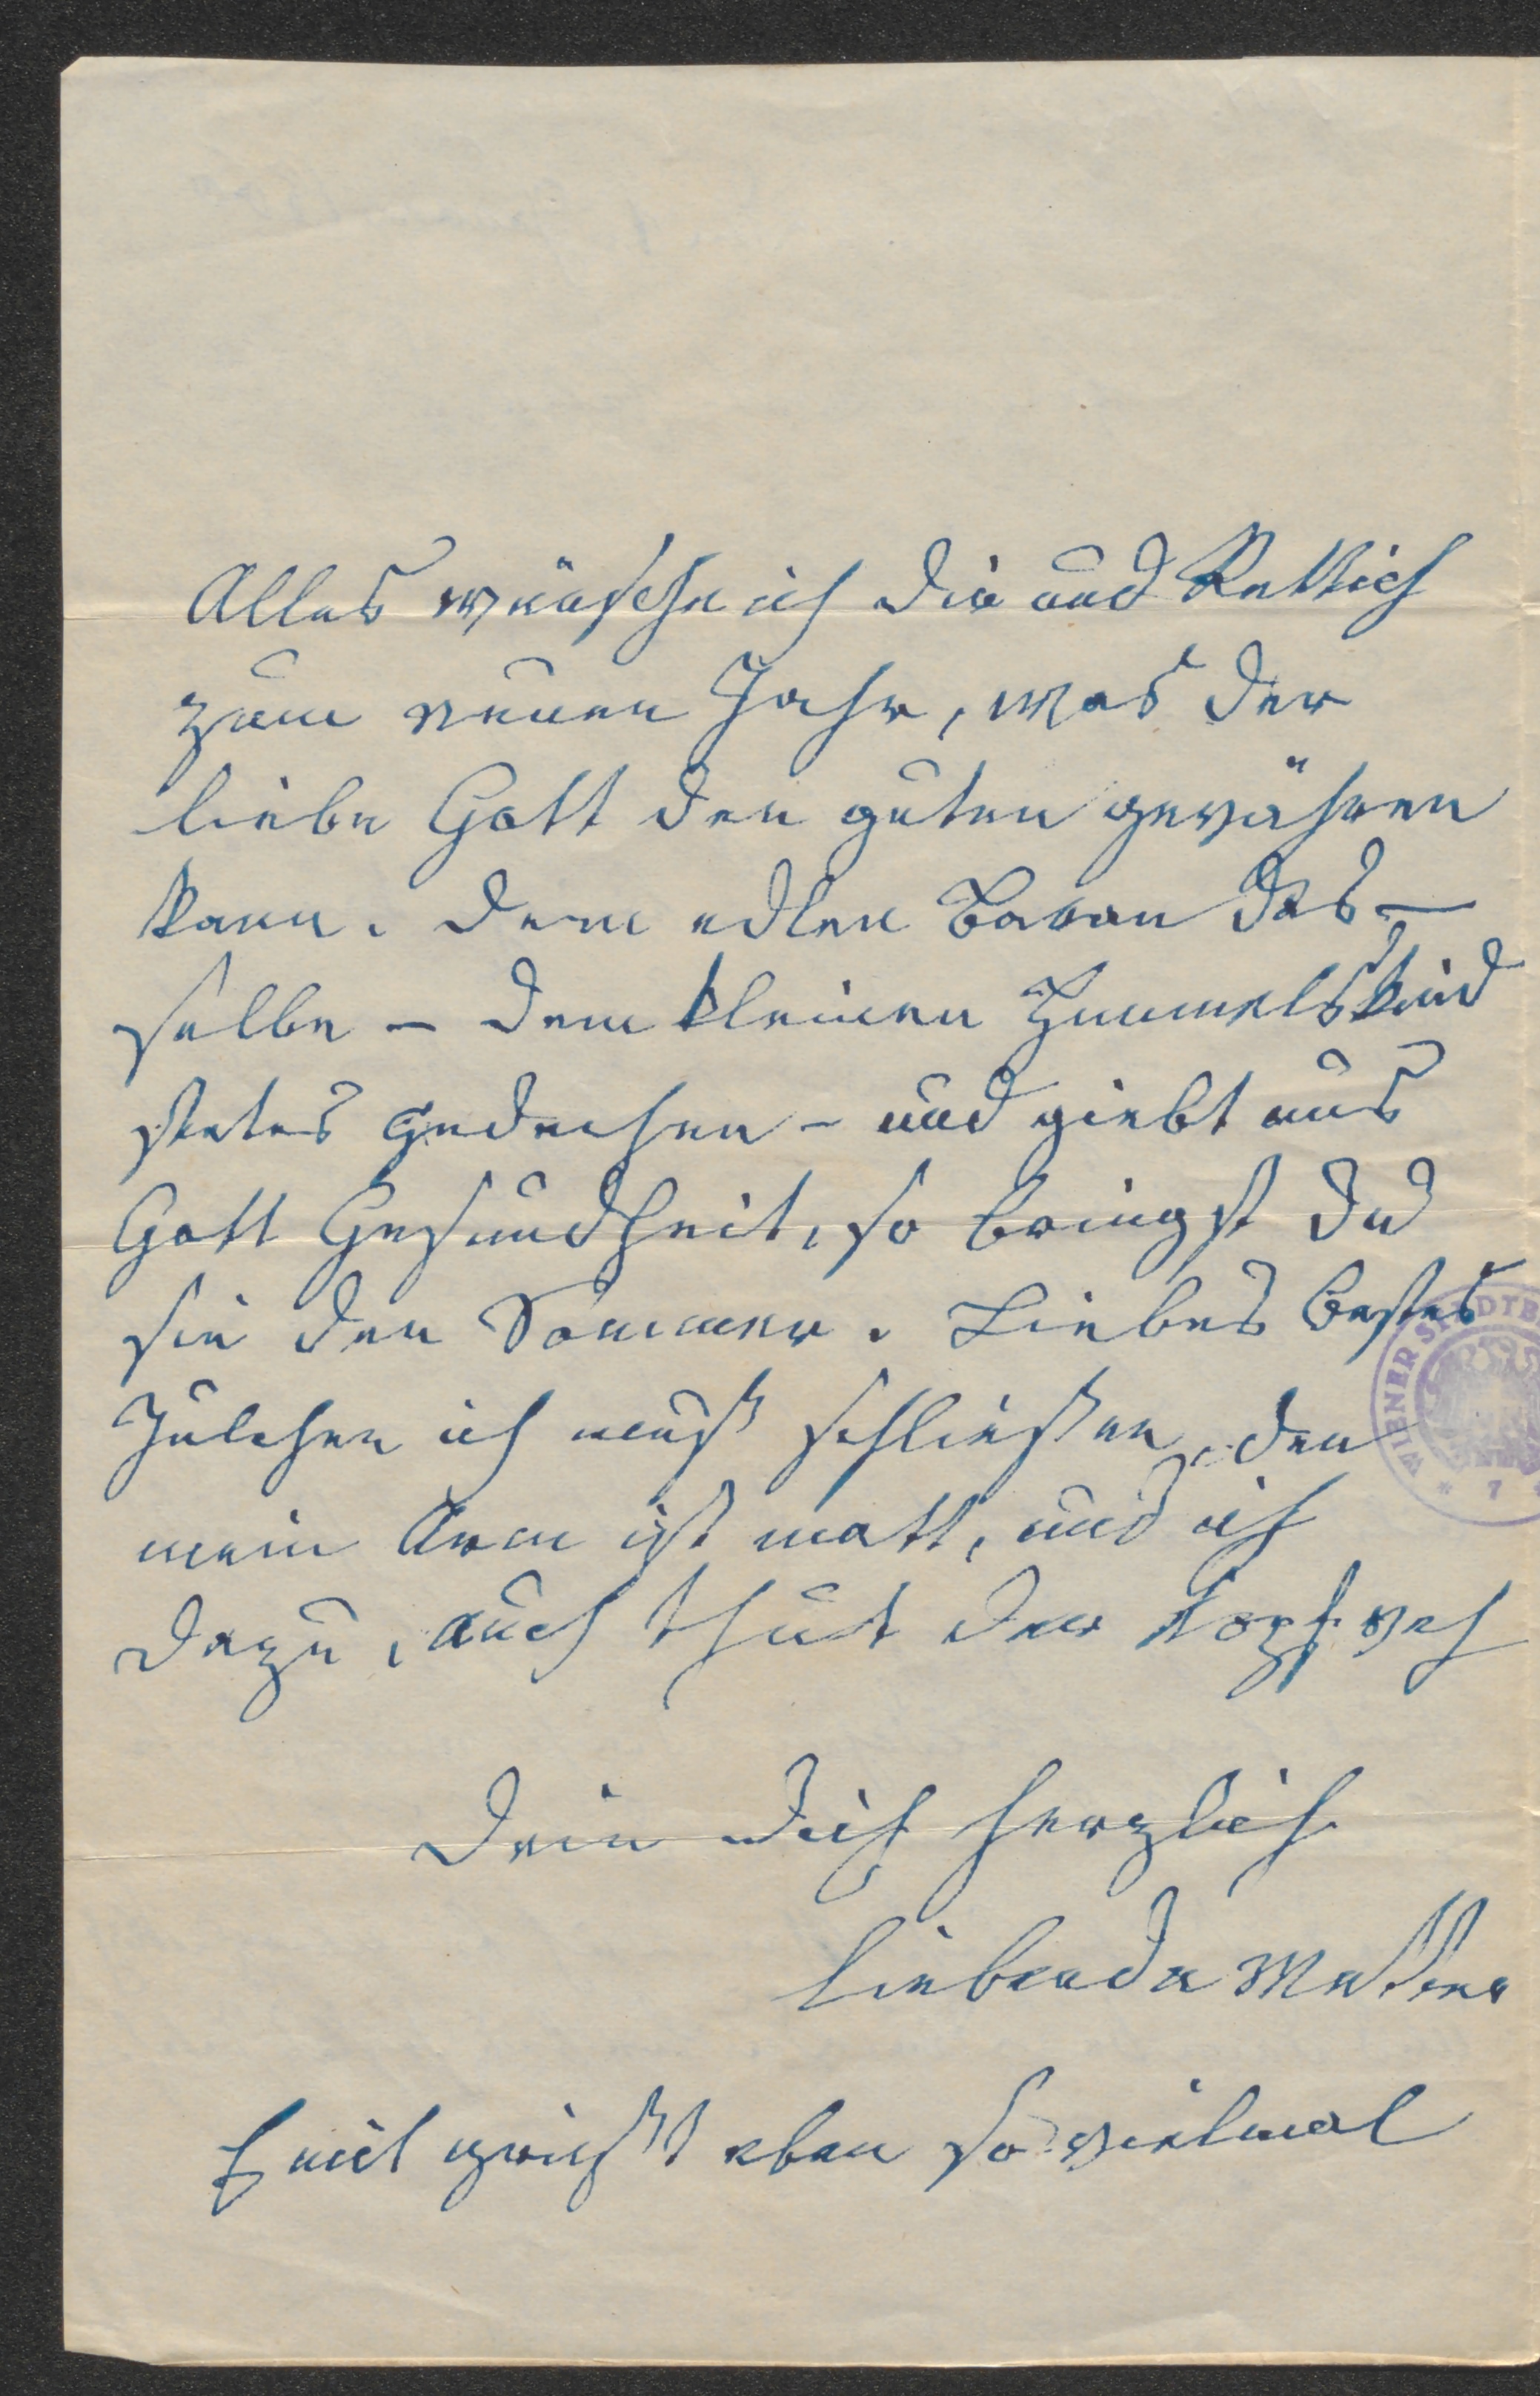 Alles wünsche ich Dir und Rettich
zum neuen Jahr, was der
liebe Gott den guten gewähren
kann. Dem edlen Baron das-
selbe – dem kleinen Himmelskind
stetes Gedeihen – und giebt uns
Gott Gesundheit, so bringst Du
sie den Sommer. Liebes bestes
Julchen ich muß schließen, den
mein Arm ist matt, und ich
dazu, auch thut der Kopf weh
Dein dich herzlich
liebende Mutter
Emil grüßt eben so vielmal
WIENER STADTB
* 7 *